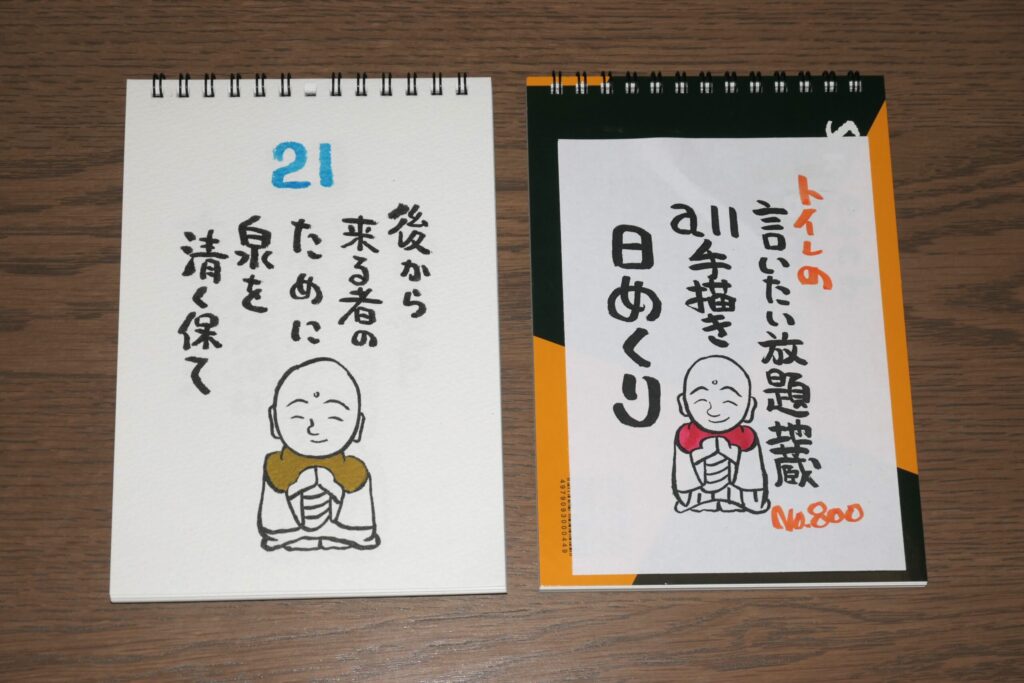 21
後から
来る者の
ために
泉を
清く保て
トイレの
言いたい放題地蔵
all手描き
日めくり
No.800
4979093000449